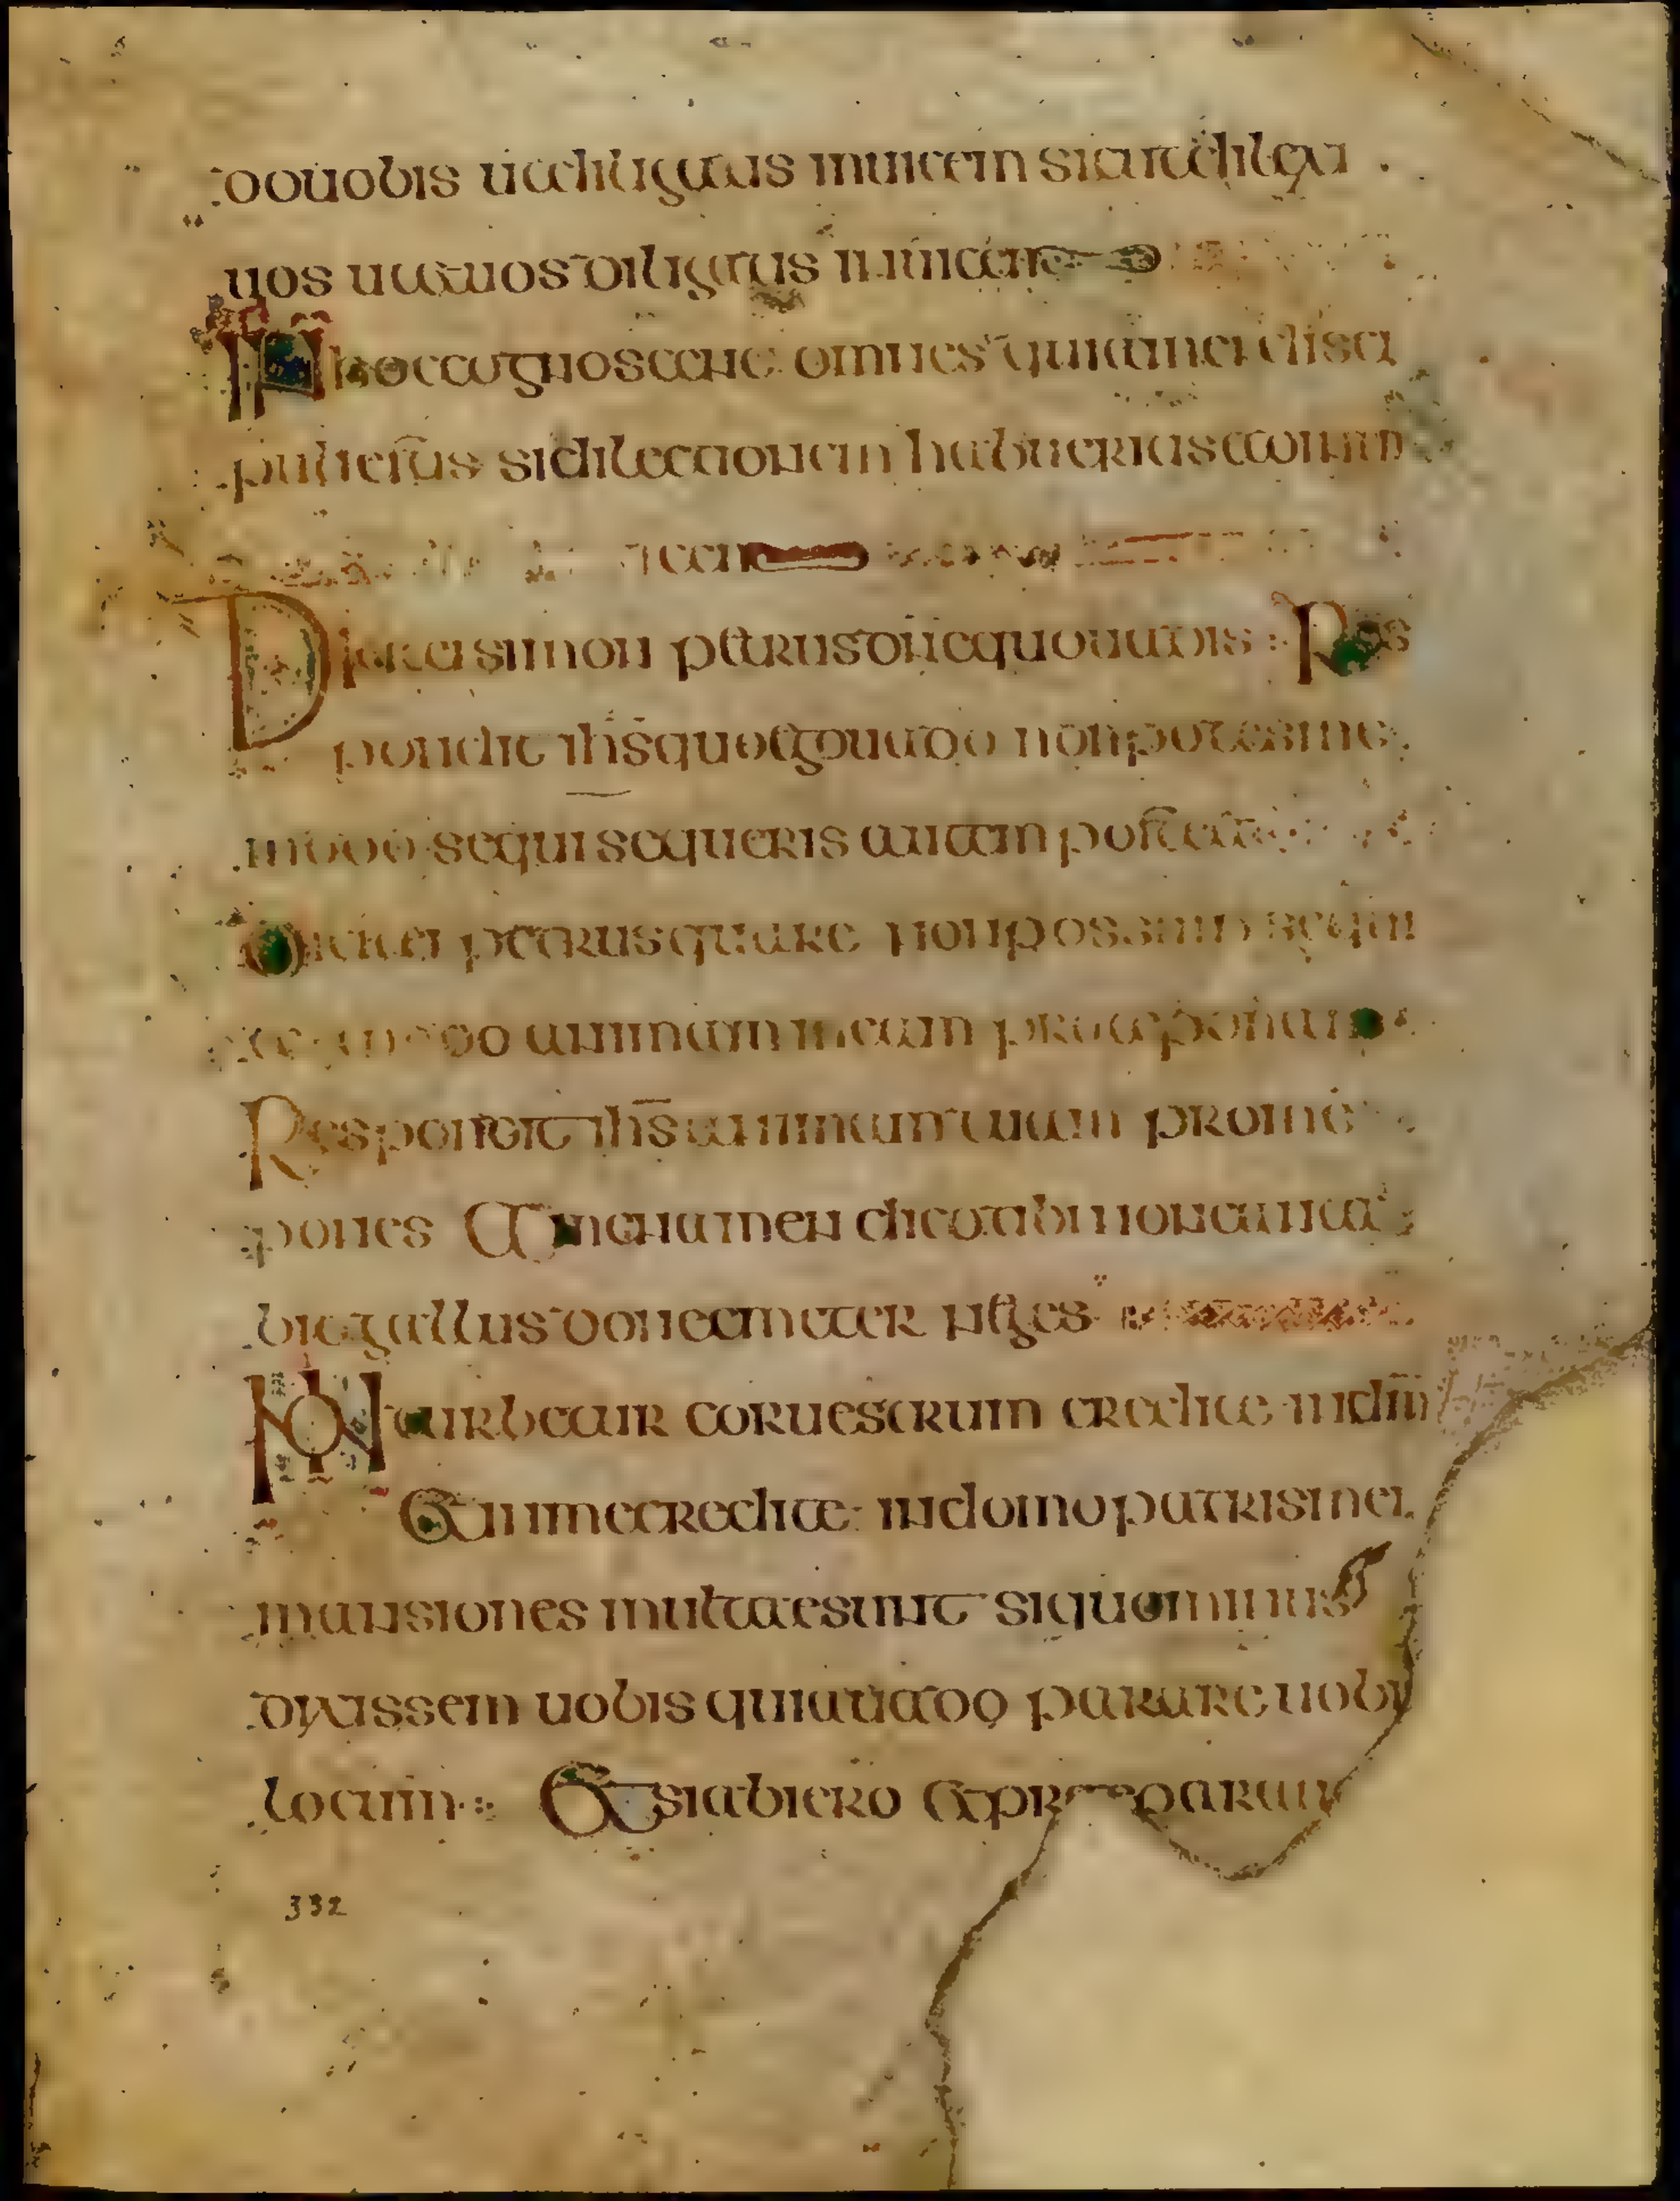 do uobis ut diligatis inuicem sicut dilexi
uos ut et uos diligatis inuicem
In hoc cognoscent omnes quia mei disci
puli estis si dilectionem habueritis ad inui
cem
Dicit ei simon petrus dn̄e quo uadis: Res
pondit ihs̄ quo ego uado non potes me
modo sequi sequeris autem post
Dicit ei petrus quare non possum sequi
te modo animam meam pro te ponam
Respondit ihs̄ animam tuam pro me
pones Amen amen dico tibi non canta
bit gallus donec me ter neges
Non turbetur cor uestrum creditis in dm̄
Et in me credite in domo patris mei
mansiones multae sunt si quo minus
dixissem uobis quia uado parare uobis
locum: Et si abiero et praeparau
332